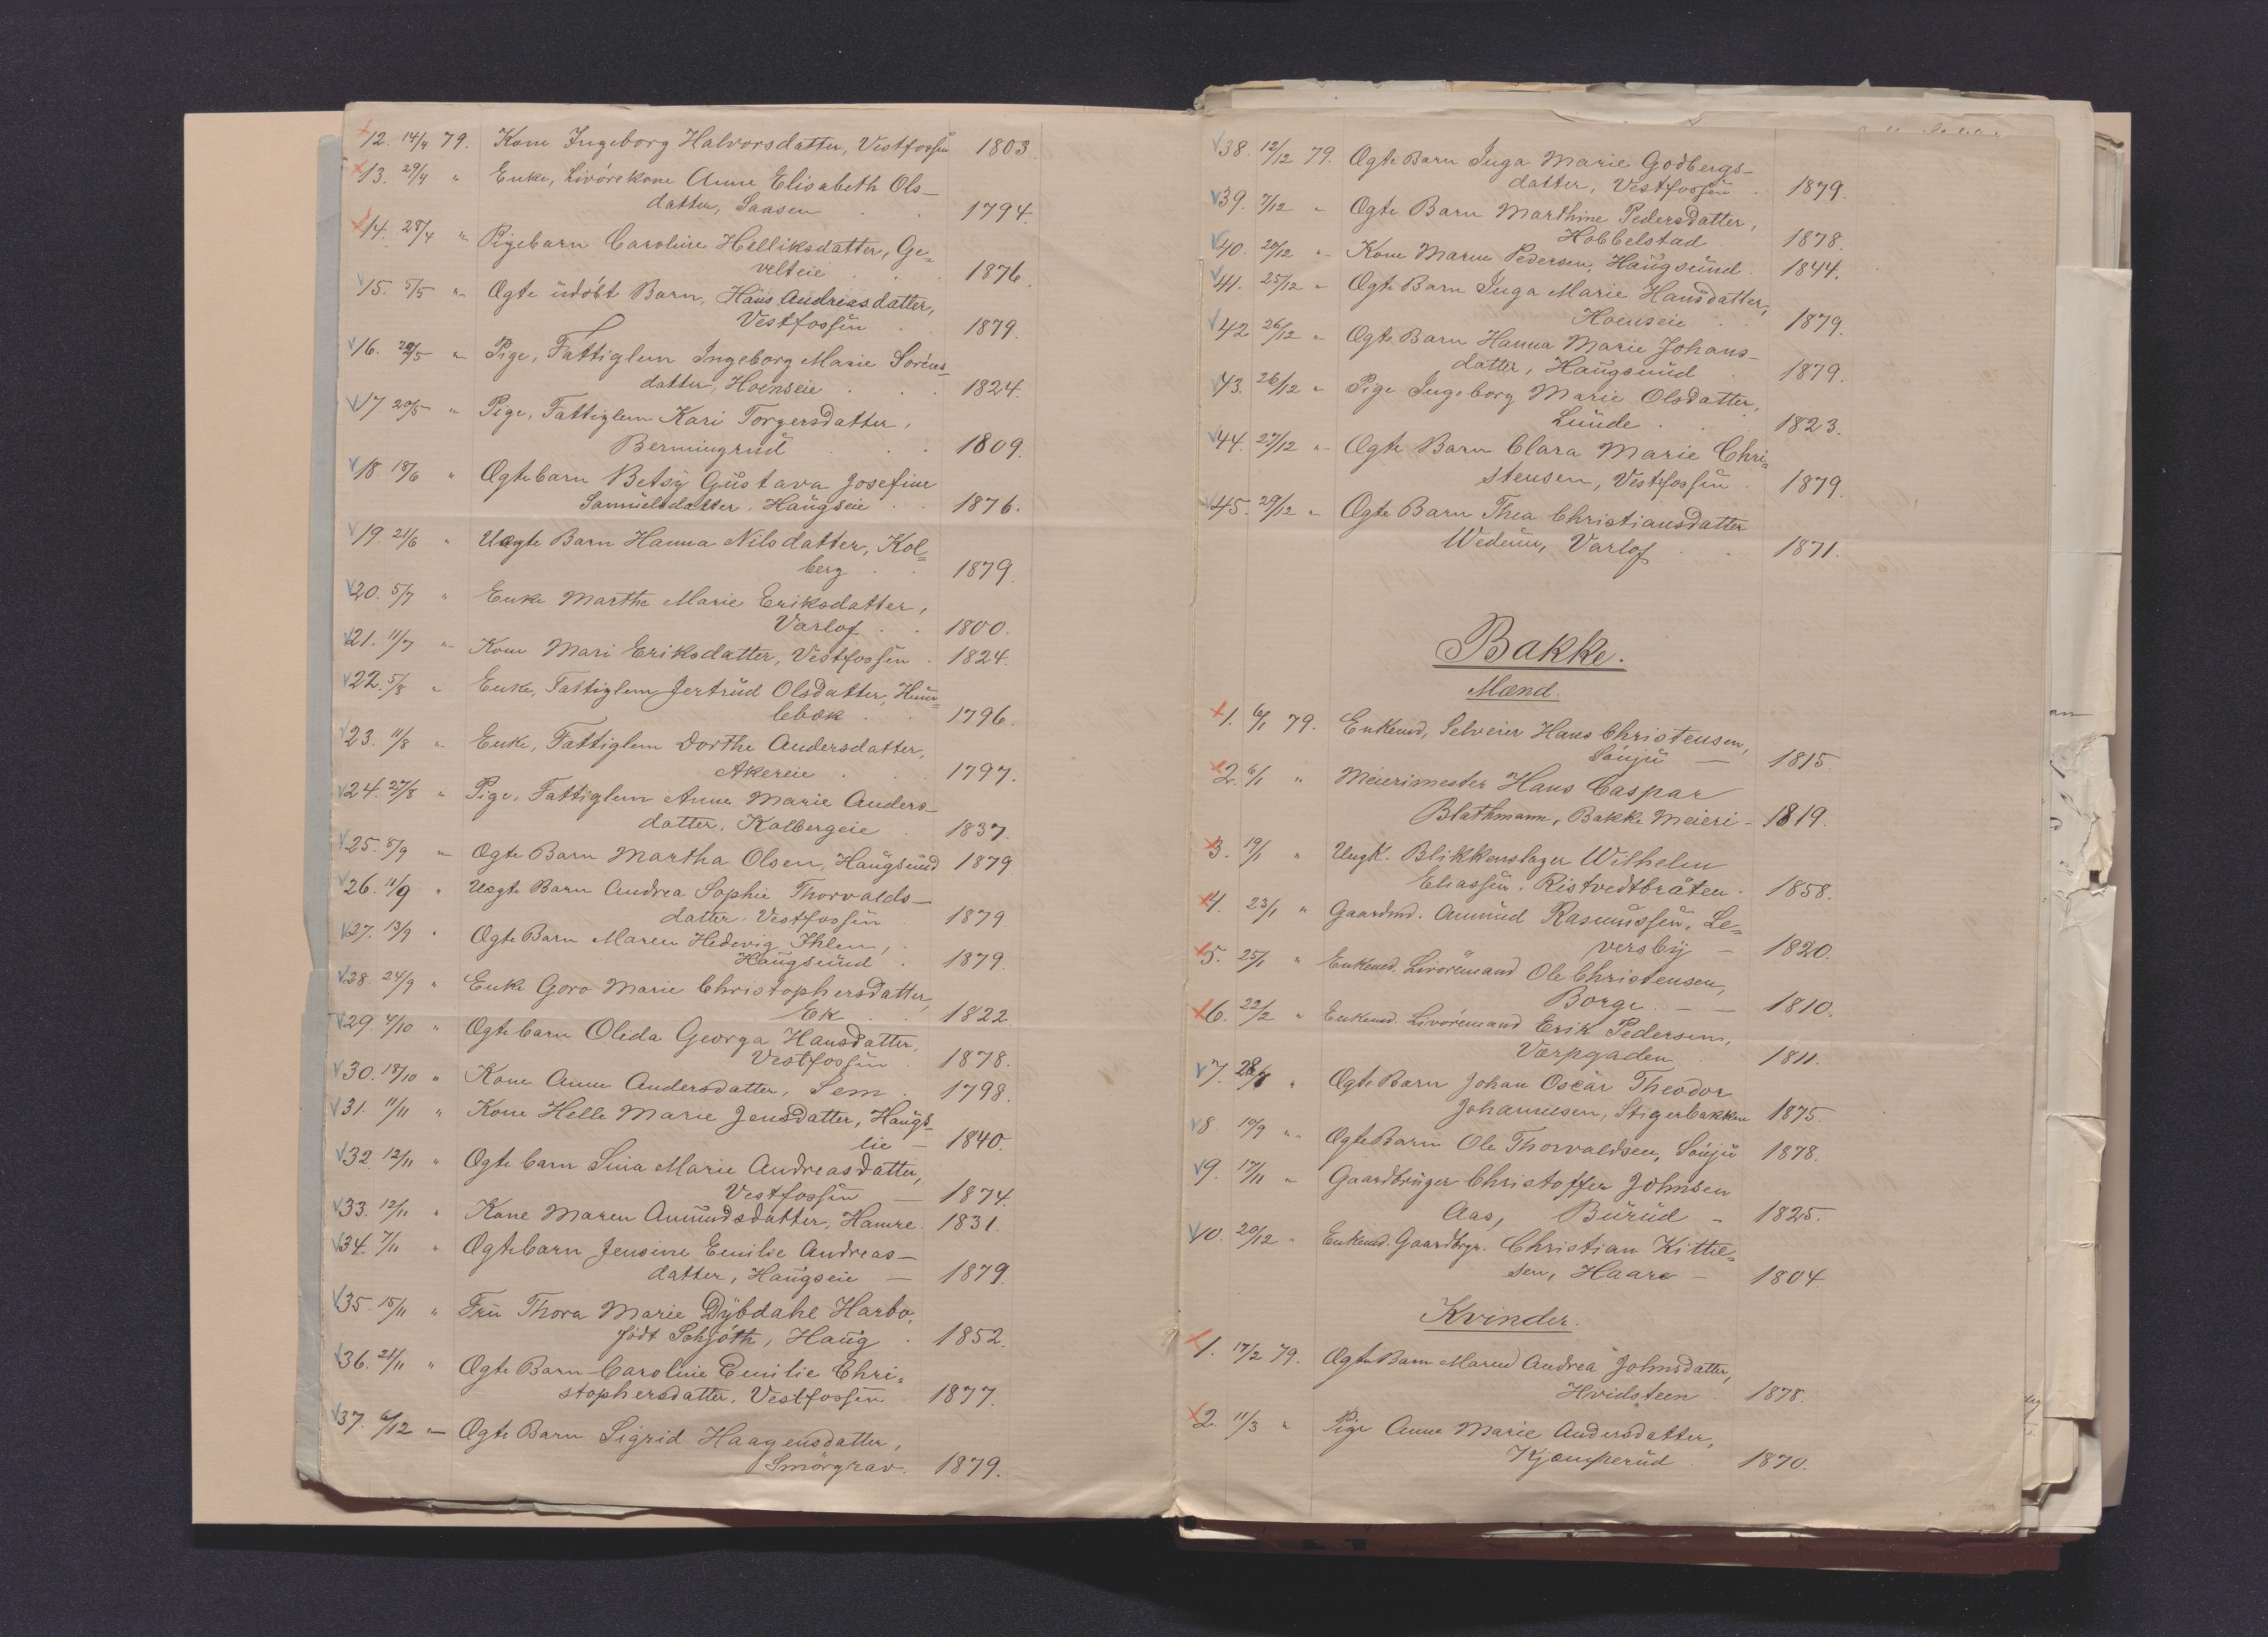 12. 14/4 79. Kone Ingeborg Halvorsdatter, Vestfossen 1803
13. 29/4 " Enke, Livörekone Anne Elisabeth Ols-
datter, Saasen . . 1794.
14. 28/4 " Pigebarn Caroline Helliksdatter, Ge=
velteie . . . 1876.
15. 5/5 " Ægte udöbt Barn, Hans Andreasdatter,
Vestfossen . 1879.
16. 20/5 " Pige, Fattiglem Ingeborg Marie Sörens-
datter, Hoenseie . . . 1824.
17. 20/5 " Pige, Fattiglem Kari Torgersdatter,
Bermingrud . . . 1809.
18. 18/6 " Ægtebarn Betsy Gustava Josefine
Samuelsdatter, Haugseie . . 1876.
19. 21/6 " Uægte Barn Hanna Nilsdatter, Kol=
berg . . 1879.
20. 5/7 " Enke Marthe Marie Eriksdatter,
Varlof . . 1800.
21. 11/7 " Kone Mari Eriksdatter, Vestfossen . 1824.
22. 5/8 " Enke, Fattiglem Jertrud Olsdatter, Hum=
lebæk . . 1796.
23. 11/8 " Enke, Fattiglem Dorthe Andersdatter,
Akereie . . . 1797.
24. 27/8 " Pige, Fattiglem Anne Marie Anders-
datter, Kolbergeie . 1837.
25. 8/9 " Ægte Barn Martha Olsen, Haugsund 1879.
26. 11/9 " Uægte Barn Andrea Sophie Thorvalds-
datter, Vestfossen 1879
27. 13/9 " Ægte Barn Maren Hedevig Ihlen,
Haugsund . 1879.
28. 24/9 " Enke Goro Marie Christophersdatter,
Ek . . 1822.
29. 4/10 " Ægtebarn Olida Georga Hansdatter,
Vestfossen . 1878.
30. 18/10 " Kone Anne Andersdatter, Sem . 1798.
31. 11/11 " Kone Helle Marie Jensdatter, Haugs-
lie - 1840.
32. 12/11 " Ægtebarn Lina Marie Andreasdatter,
Vestfossen - 1874.
33. 12/11 " Kone Maren Amundsdatter, Hamre 1831.
34. 7/11 " Ægtebarn Jensine Emilie Andreas-
datter, Haugseie - 1879.
35. 15/11 " Fru Thora Marie Dybdahl Harbo,
födt Schjöth, Haug . 1852.
36. 21/11 " Ægte Barn Caroline Emilie Chri=
stophersdatter, Vestfossen . 1877.
37. 6/12 " Ægte Barn Sigrid Haagensdatter,
Smörgrav. 1879.
38. 12/12 79. Ægte Barn Inga Marie Godbergs-
datter, Vestfossen . 1879.
39. 7/12 " Ægte Barn Marthine Pedersdatter,
Hobbelstad . 1878.
40. 20/12 " Kone Maren Pedersen, Haugsund . 1844.
41. 25/12 " Ægte Barn Inga Marie Hansdatter,
Hoenseie . . 1879.
42 26/12 " Ægte Barn Hanna Marie Johans-
datter, Haugsund . 1879.
43. 26/12 " Pige Ingeborg Marie Olsdatter,
Lunde . . . 1823.
44. 27/12 " Ægte Barn Clara Marie Chri=
stensen, Vestfossen . 1879.
45. 29/12 " Ægte Barn Thea Christiansdatter
Wedum, Varlof . . 1871.
Bakke.
Mænd.
1. 6/1 79. Enkemd, Selveier Hans Christensen,
Sönju - 1815.
2. 6/1 " Meierimester Hans Caspar
Blathmann, Bakke Meieri - 1819.
3. 19/1 " Ungk. Blikkenslager Wilhelm
Eliassen, Ristvedtbråten . 1858.
4. 23/1 " Gaardmd. Amund Rasmussen, Le=
versby - 1820.
5. 25/1 " Enkemd. Livöremand Ole Christensen,
Borge - - 1810.
6. 22/2 " Enkemd. Livöremand Erik Pedersen,
Værpgaden . 1811.
7. 28/8 " Ægte Barn Johan Oscar Theodor
Johannesen, Stigerbakken 1875.
8. 10/9 " Ægte Barn Ole Thorvaldsen, Sönju 1878.
9. 17/11 " Gaardbruger Christoffer Johnsen
Aas, Burud - 1825.
10. 20/12 " Enkemd. Gaardbrgr. Christian Kittil=
sen, Haare - 1804.
Kvinder.
1. 17/2 79. Ægte Barn Maren Andrea Johnsdatter,
Hvidsteen . 1878.
2. 11/3 " Pige Anne Marie Andersdatter,
Kjæmperud . 1870.